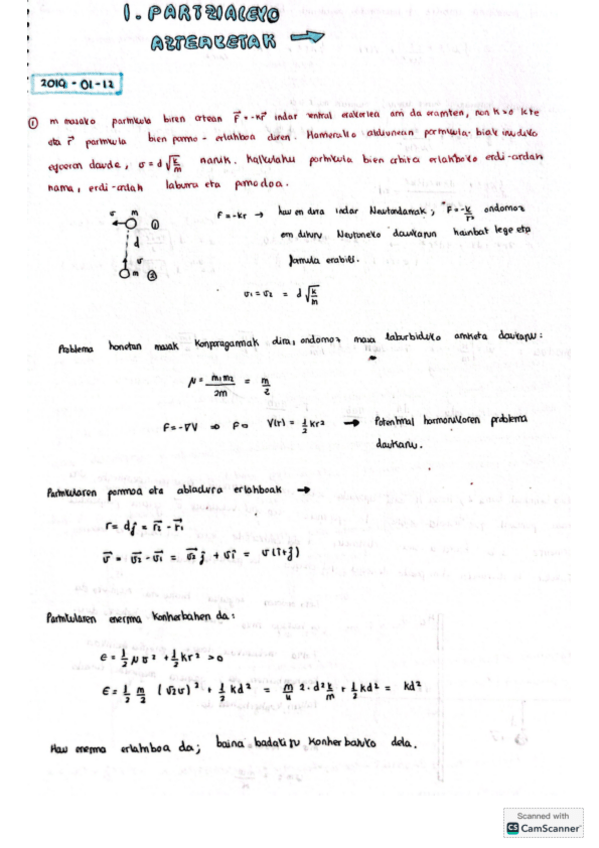 1. PARTZIALEKO
AZTERKETAK →
2019 - 01 - 12
① m masako partikula biren artean F⃗ = -kr⃗ indar zentral erakarlea da, non k>0
eta r⃗ partikula bien posizio - erlatiboa diren. Hasierako aldiunean partikula biak irudiko
egoeran daude, v = d√(k/m) Kalkulatu partikula bien orbita erlatiboko erdi-ardatz
erdi-ardatz laburra eta periodoa.
v m ①
d
v
m ②
F = -kr → hau ez da indar Newtondarra; "F = -k/r²" ondorioz
ez ditugu Newtoneko daukagun hainbat lege eta
formula erabili.
v₁ = v₂ = d√(k/m)
Problema honetan masak konparagarriak dira, ondorioz masa laburbilduko daukagu:
μ = m₁m₂/2m = m/2
F = -∇V ⇒ V(r) = ½ kr² → Potentzial harmonikoaren problema
daukagu.
Partikularen posizioa eta abiadura erlatiboak →
r = dj = r⃗₂ - r⃗₁
v⃗ = v⃗₂ - v⃗₁ = v⃗₂ j + vî = v(î+j)
Partikularen energia kontserbatzen da:
E = ½ μv² + ½ kr² > 0
E = ½ m/2 (√2v)² + ½ kd² = m/4 2·d² k/m + ½ kd² = kd²
Hau energia erlatiboa da; baina badakigu kontserbatuko dela.
Scanned with
CS CamScanner